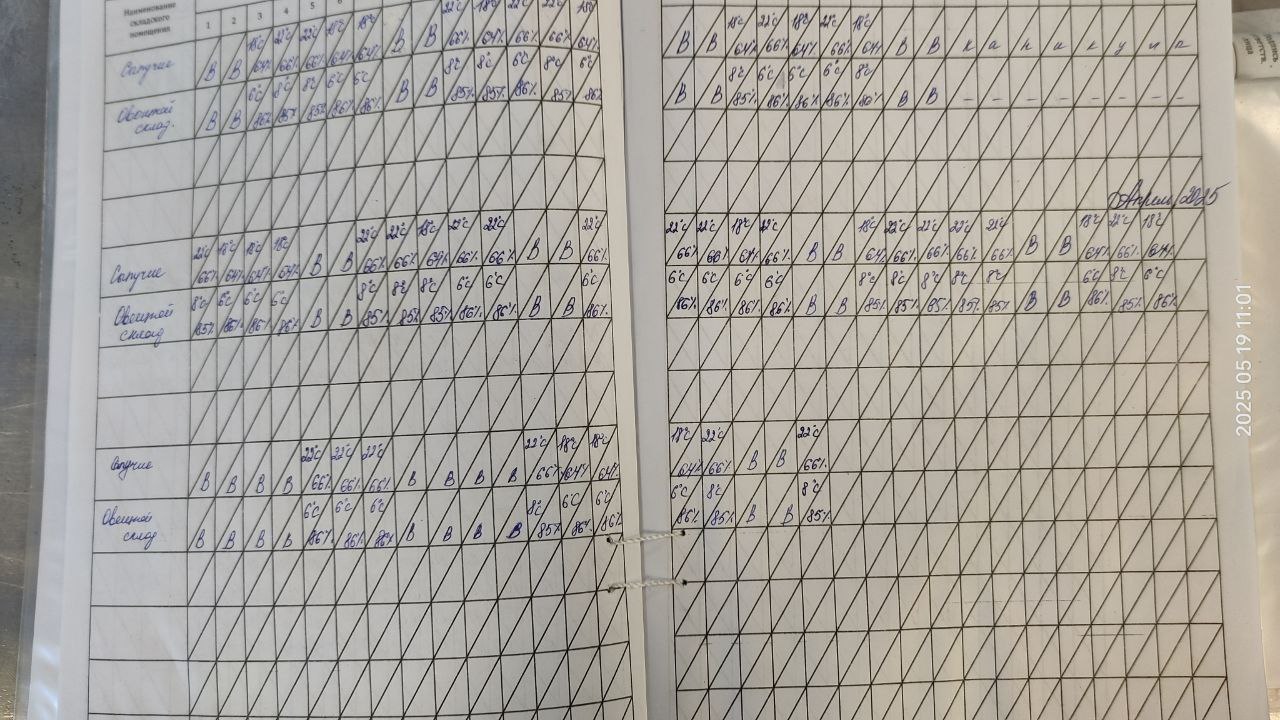 Наименование
складского
помещения
1 2 3 4 5 6
Сыпучие
В В 18°С 64% 22°С 66% 22°С 66% 18°С 64% 18°С 64% В В 22°С 66% 18°С 64% 22°С 66% 22°С 66% 18°С 64%
В В 18°С 64% 22°С 66% 18°С 64% 22°С 66% 18°С 64% В В к а н и к у л а
Овощной
склад.
В В 6°С 86% 8°С 85% 8°С 85% 6°С 86% 6°С 86% В В 8°С 85% 8°С 85% 6°С 86% 8°С 85% 6°С 86%
В В 8°С 85% 6°С 86% 6°С 86% 6°С 86% 8°С В В - - - - - - - -
Апрель/2025
Сыпучие
22°С 66% 18°С 64% 18°С 64% 18°С 64% В В 22°С 66% 22°С 66% 18°С 64% 22°С 66% 22°С 66% В В 22°С 66%
22°С 66% 22°С 66 18°С 64% 22°С 66% В В 18°С 64% 22°С 66% 22°С 66% 22°С 66% 22°С 66% В В 18°С 64% 22°С 66% 18°С 64%
Овощной
склад
8°С 85% 6°С 86% 6°С 86% 6°С 86% В В 8°С 85% 8°С 85% 8°С 85% 6°С 86% 6°С 86% В В 6°С 86%
6°С 86% 6°С 86% 6°С 86% 6°С 86% В В 8°С 85% 8°С 85% 8°С 85% 8°С 85% 8°С 85% В В 6°С 86% 8°С 85% 6°С 86%
Сыпучие
В В В В 22°С 66% 22°С 66% 22°С 66% В В В В 22°С 66% 18°С 64% 18°С 64%
18°С 64% 22°С 66% В В 22°С 66%
Овощной
склад
В В В В 6°С 86% 6°С 86% 6°С 86% В В В В 8°С 85% 6°С 86% 6°С 86%
6°С 86% 8°С 85% В В 8°С 85%
2025 05 19 11:01